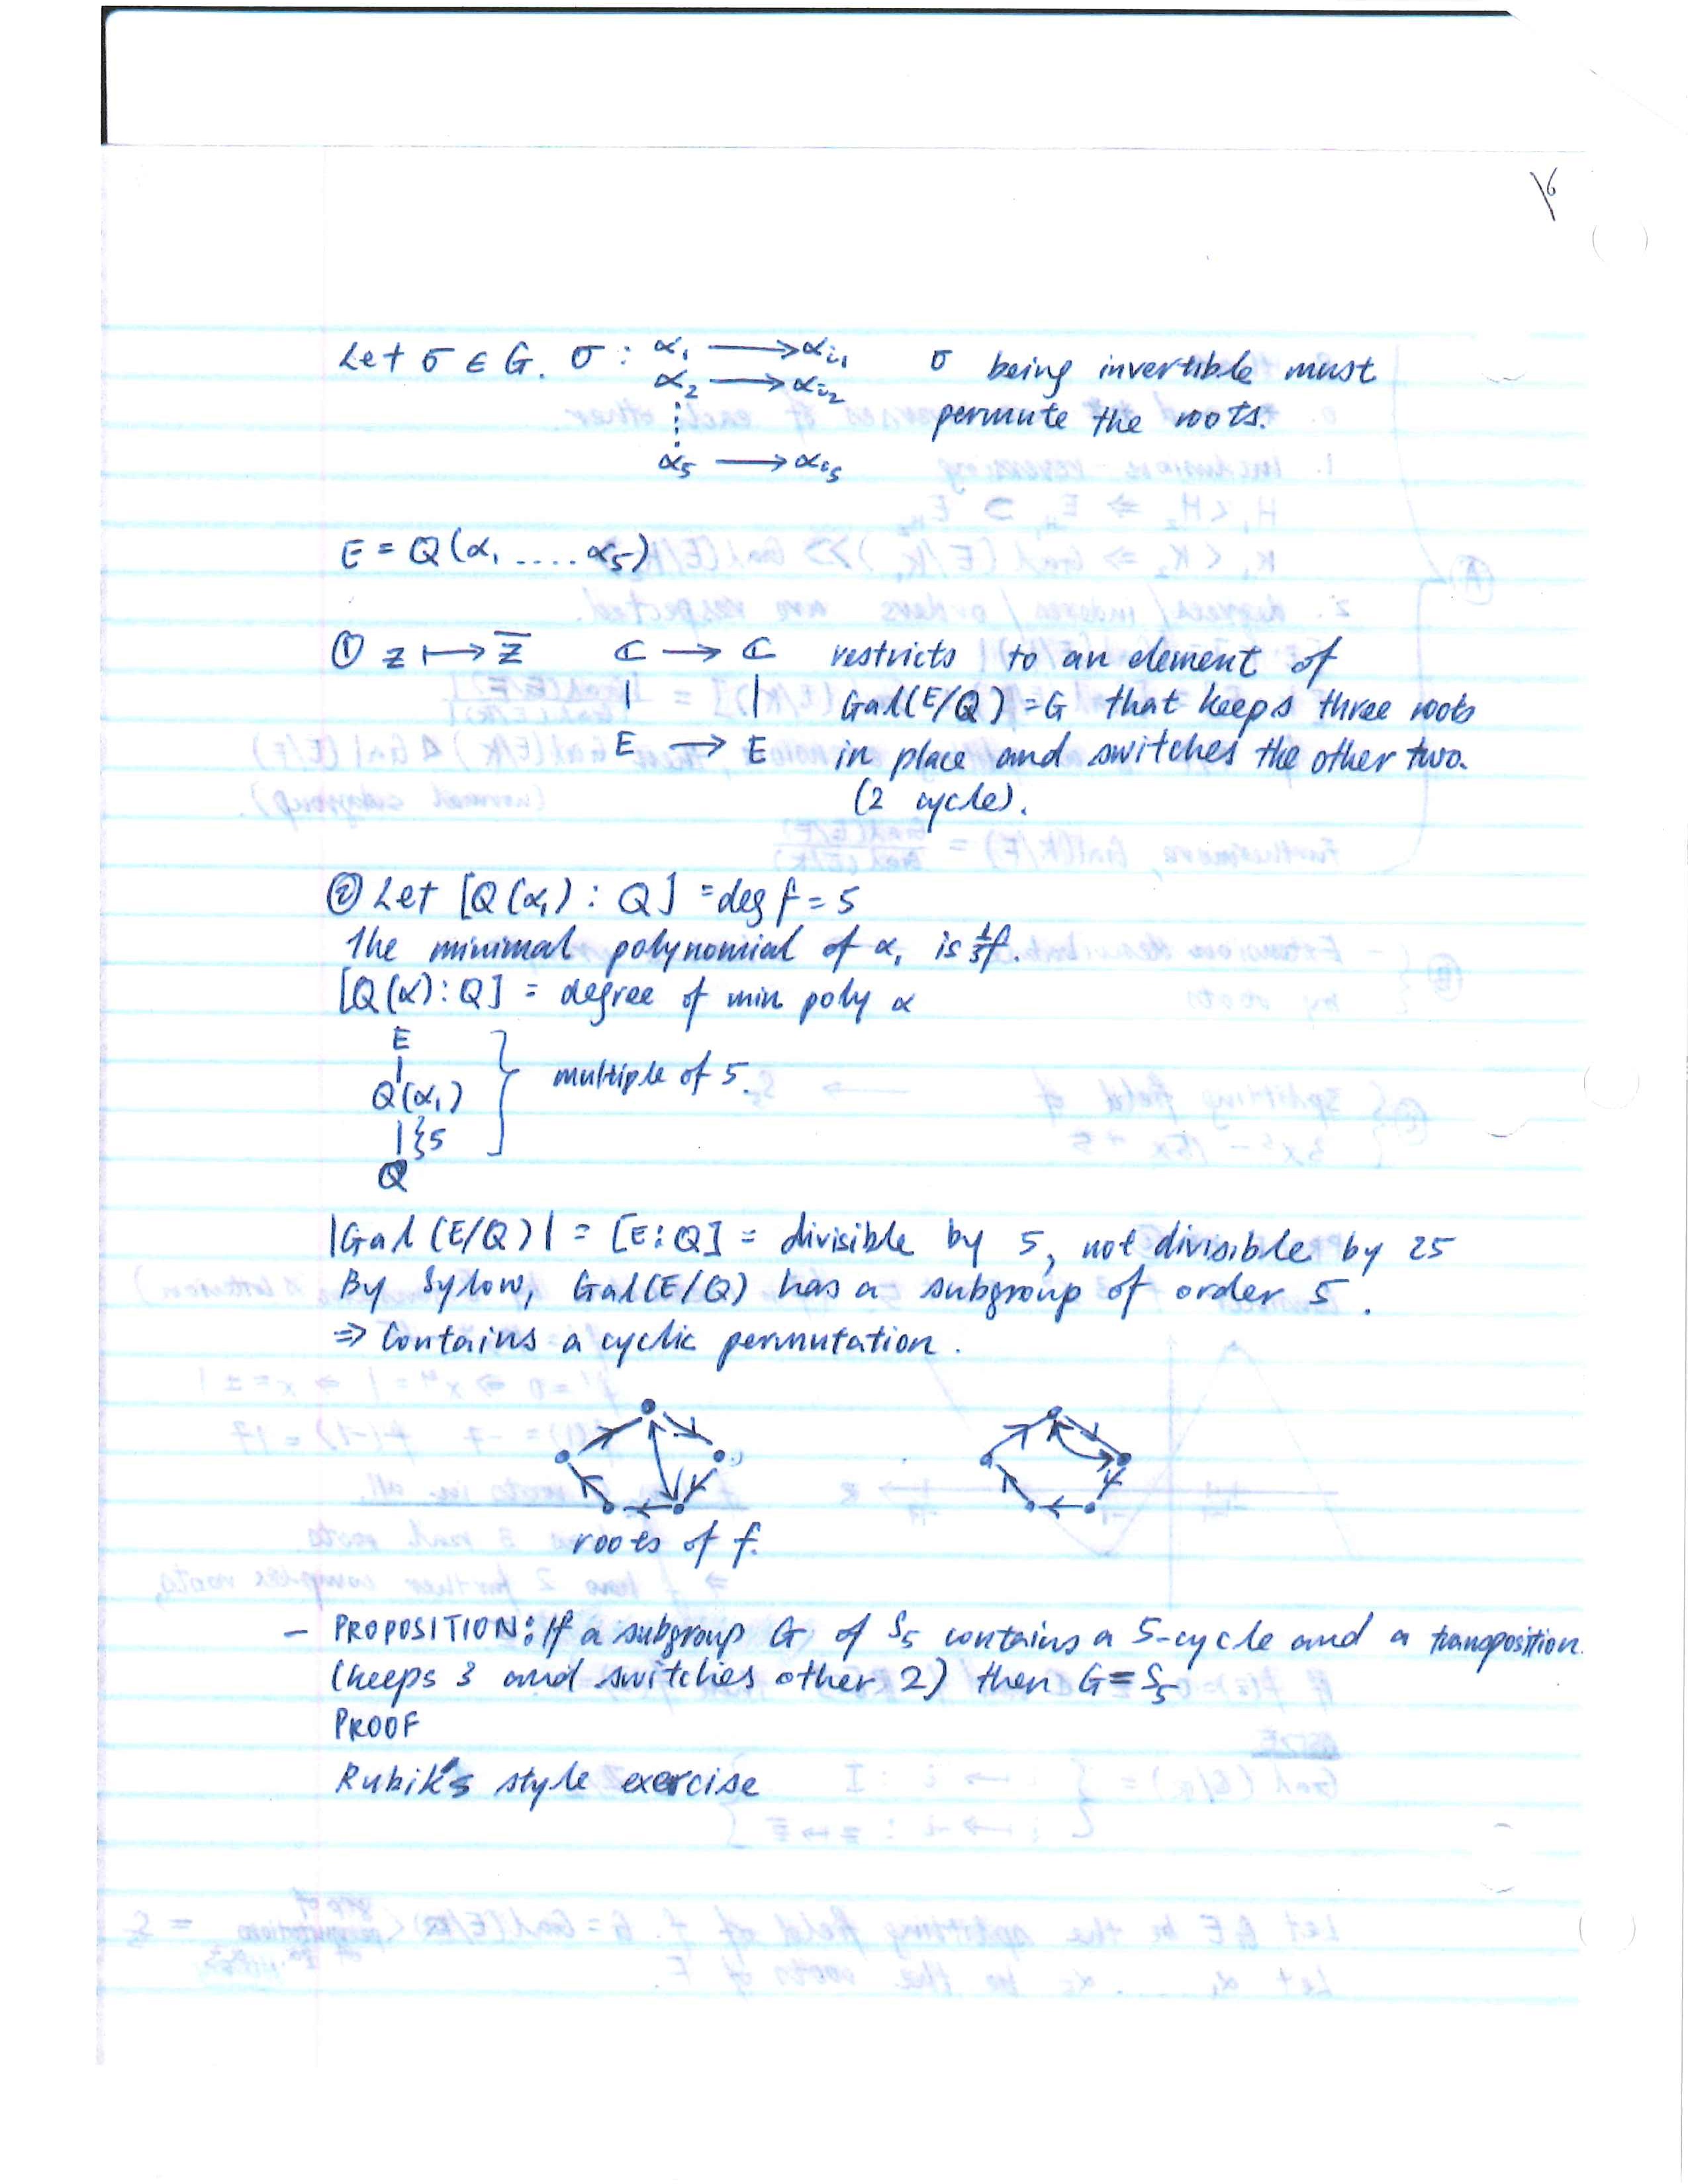 16
Let σ ∈ G. σ : α₁ ⟶ αᵢ₁ σ being invertible must
α₂ ⟶ αᵢ₂ permute the roots.
⋮
α₅ ⟶ αᵢ₅
E = Q(α₁ .... α₅)
① z ↦ z̄ ℂ → ℂ restricts to an element of
| | Gal(E/Q) = G that keeps three roots
E → E in place and switches the other two.
(2 cycle).
② Let [Q(α₁) : Q] = deg f = 5
The minimal polynomial of α₁ is ⅓f.
[Q(α) : Q] = degree of min poly α
E
|
Q(α₁) } multiple of 5.
| } 5
Q
|Gal(E/Q)| = [E:Q] = divisible by 5, not divisible by 25
By Sylow, Gal(E/Q) has a subgroup of order 5.
⇒ Contains a cyclic permutation.
roots of f.
– PROPOSITION: If a subgroup G of S₅ contains a 5-cycle and a transposition.
(keeps 3 and switches other 2) then G = S₅
PROOF
Rubik's style exercise